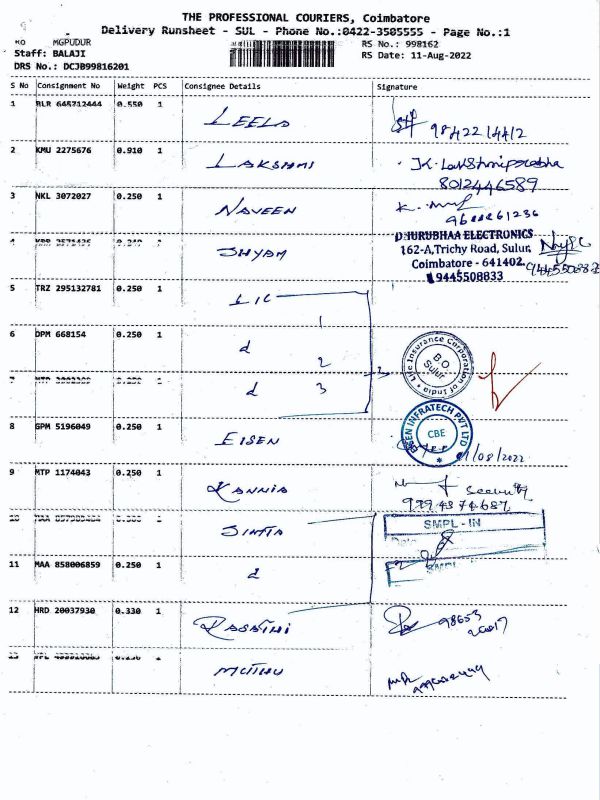 THE PROFESSIONAL COURIERS, Coimbatore
Delivery Runsheet - SUL - Phone No.:0422-3505555 - Page No.:1
RO MGPUDUR
RS No.: 998162
Staff: BALAJI
RS Date: 11-Aug-2022
DRS No.: DCJB99816201
S No Consignment No Weight PCS Consignee Details Signature
1 BLR 645712444 0.550 1 LEELA 9842214412
2 KMU 2275676 0.910 1 LAKSHMI
8012446589
3 NKL 3072027 0.250 1 NAVEEN
4 1 SHYAM
ELECTRONICS
162-A,Trichy Road, Sulur,
Coimbatore - 641402.
9445508833
5 TRZ 295132781 0.250 1 LIC 1
6 DPM 668154 0.250 1 d 2
7 1 d 3
Life Insurance Corporation of India
B.O.
Sulur
8 GPM 5196049 0.250 1 EISEN
EISEN INFRATECH PVT LTD
CBE
/08/2022
9 MTP 1174043 0.250 1 KANNIA
10 1
SMPL - IN
11 MAA 858006859 0.250 1 d
SMPL
12 HRD 20037930 0.330 1 RASATHI 98653
13 1 MUTHU